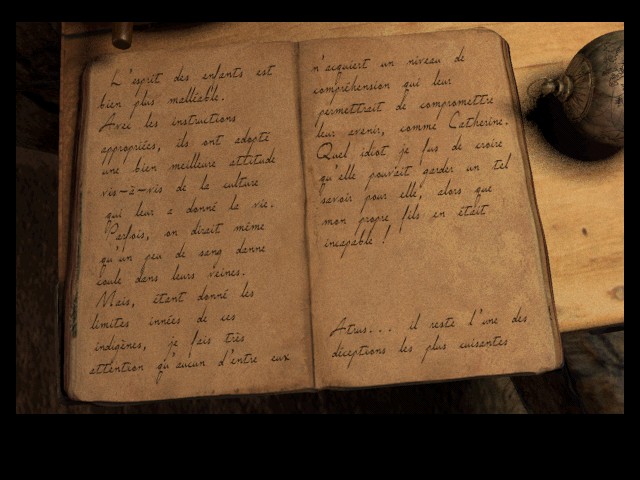 L'esprit des enfants est
bien plus malléable.
Avec les instructions
appropriées, ils ont adopté
une bien meilleure attitude
vis-à-vis de la culture
qui leur a donné la vie.
Parfois, on dirait même
qu'un peu de sang danne
coule dans leurs veines.
Mais, étant donné les
limites innées de ces
indigènes, je fais très
attention qu'aucun d'entre eux
n'acquiert un niveau de
compréhension qui leur
permettrait de compromettre
leur avenir, comme Catherine.
Quel idiot je fus de croire
qu'elle pouvait garder un tel
savoir pour elle, alors que
mon propre fils en était
incapable !
Atrus... il reste l'une des
déceptions les plus cuisantes